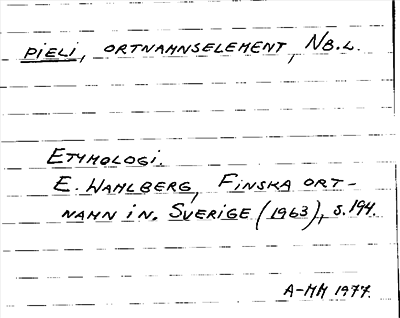 pieli, ORTNAMNSELEMENT, NB.L.
ETYMOLOGI.
E. WAHLBERG, FINSKA ORT-
NAMN I N. SVERIGE (1963), S.194.
A-MM 1977.